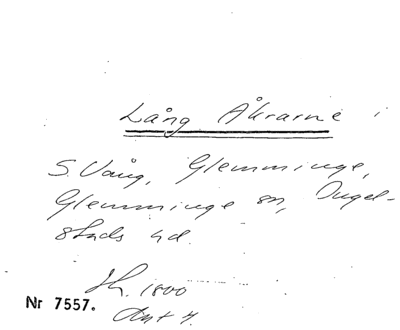 Lång Åkrarne i
S. Vång, Glemminge,
Glemminge sn, Ingel-
stads hd.
Sk. 1800
Nr 7557. Akt 4.